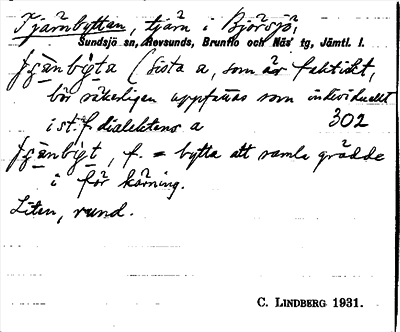 Tjärnbyttan, tjärn i Björsjö,
Sundsjö sn, Revsunds, Brunflo och Näs tg, Jämtl. l.
(sista a, som är faktiskt,
bör säkerligen uppfattas som individuellt
i st. f. dialektens a 302
f. = bytta att samla grädde
i för kärning.
Liten, rund.
C. LINDBERG 1931.